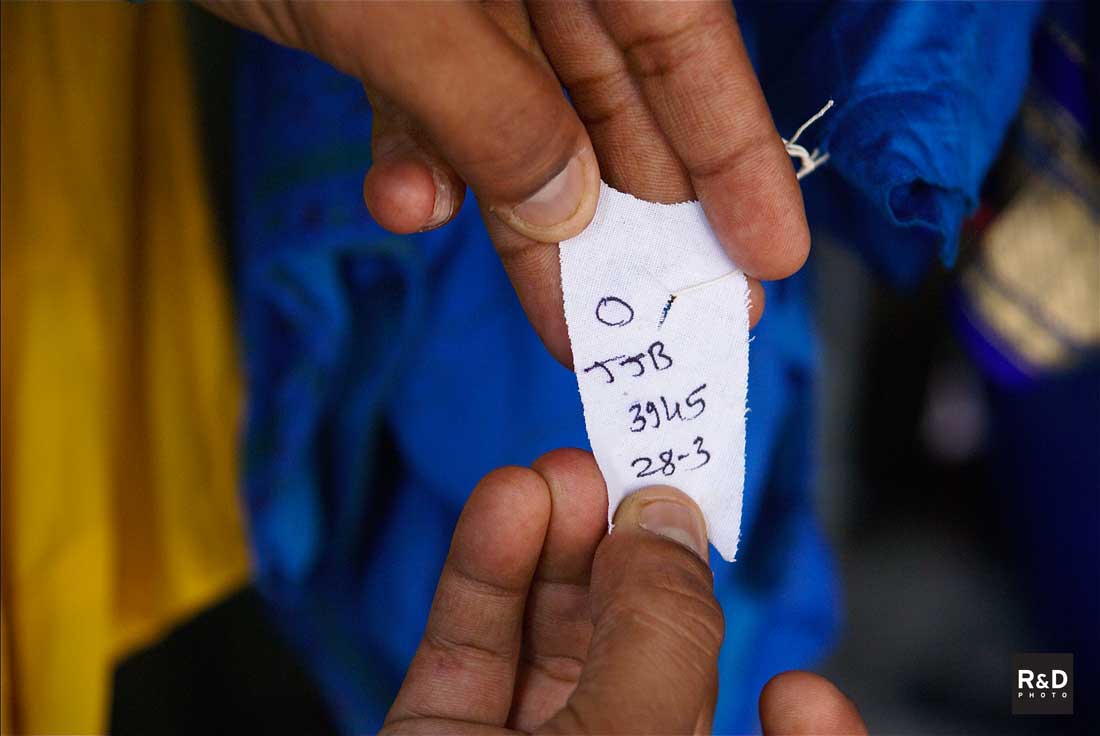 O
JJB
3945
28-3
R&D
PHOTO